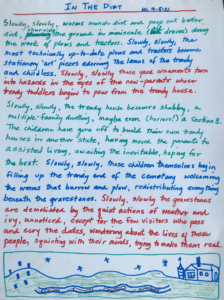 IN THE DIRT
Slowly, slowly, worms munch dirt and poop out better
dirt, the ground in miniscule droves doing
the work of plows and tractors. Slowly, slowly, the
most technically up-to-date plows and tractors become
stationary "art" pieces adorning the lawns of the trendy
and childless. Slowly, slowly these yard ornaments turn
into hazards in the eyes of the new-parents whose
trendy toddlers begin to pour from the trendy house.
Slowly, slowly, the trendy house becomes shabby, a
multiple-family dwelling, maybe even (horror!) a Section 8.
The children have gone off to build their own trendy
houses in another state, having moved the parents to
assisted living, awaiting the inevitable, hoping for
the best. Slowly, slowly, these children themselves begin
filling up the trendy end of the cemetery welcoming
the worms that burrow and plow, redistributing everything
beneath the gravestones. Slowly, slowly the gravestones
are demolished by the quiet actions of weather and
ivy, unnoticed, except for the few visitors who pass
and the dates, wondering about the lives of these
people, squinting with their minds, trying to make them real.